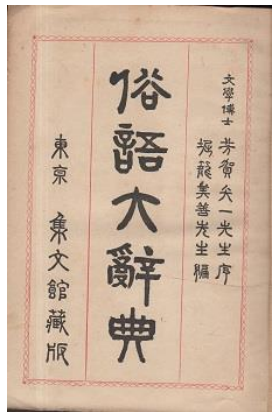 文學博士 芳賀矢一先生序
堀籠美善先生編
俗語大辭典
東京 集文館藏版